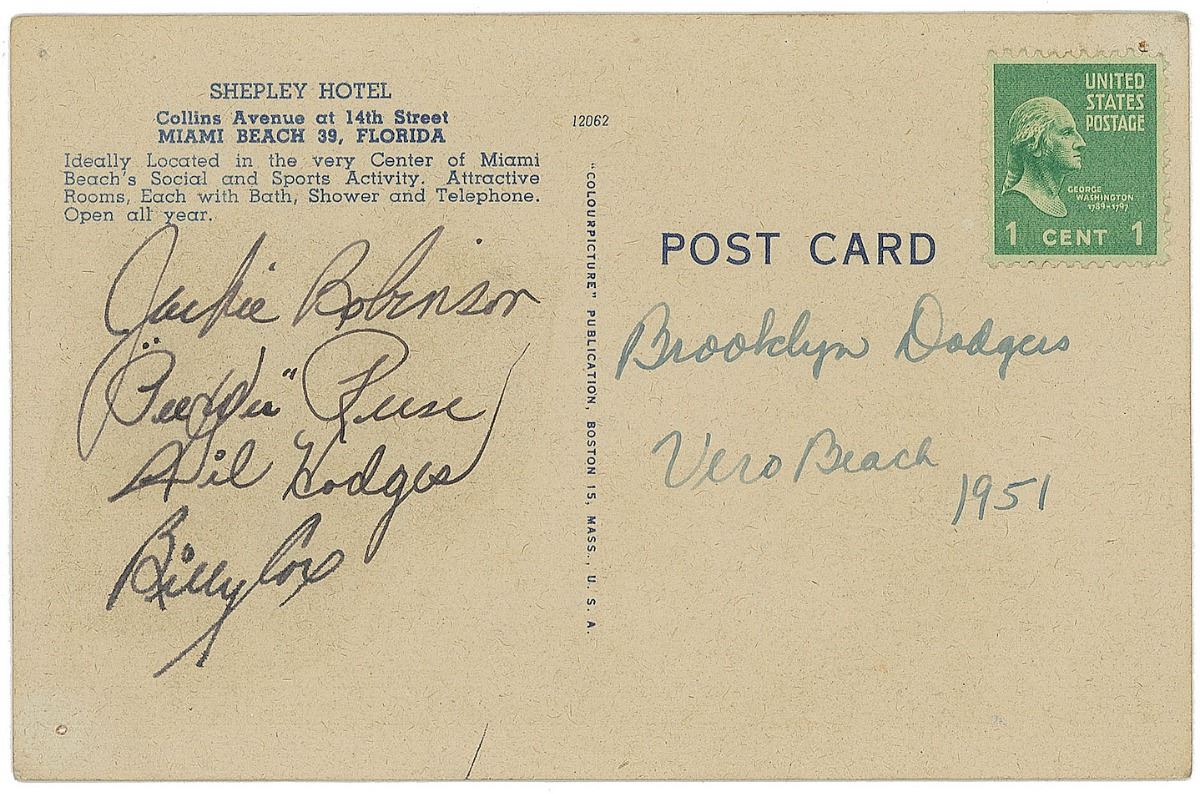 SHEPLEY HOTEL
Collins Avenue at 14th Street
MIAMI BEACH 39, FLORIDA
Ideally Located in the very Center of Miami
Beach's Social and Sports Activity. Attractive
Rooms, Each with Bath, Shower and Telephone.
Open all year.
Jackie Robinson
"PeeWee" Reese
Gil Hodges
Billy Cox
12062
"COLOURPICTURE" PUBLICATION, BOSTON 15, MASS., U. S. A.
POST CARD
UNITED
STATES
POSTAGE
GEORGE
WASHINGTON
1789-1797
1 CENT 1
Brooklyn Dodgers
Vero Beach
1951